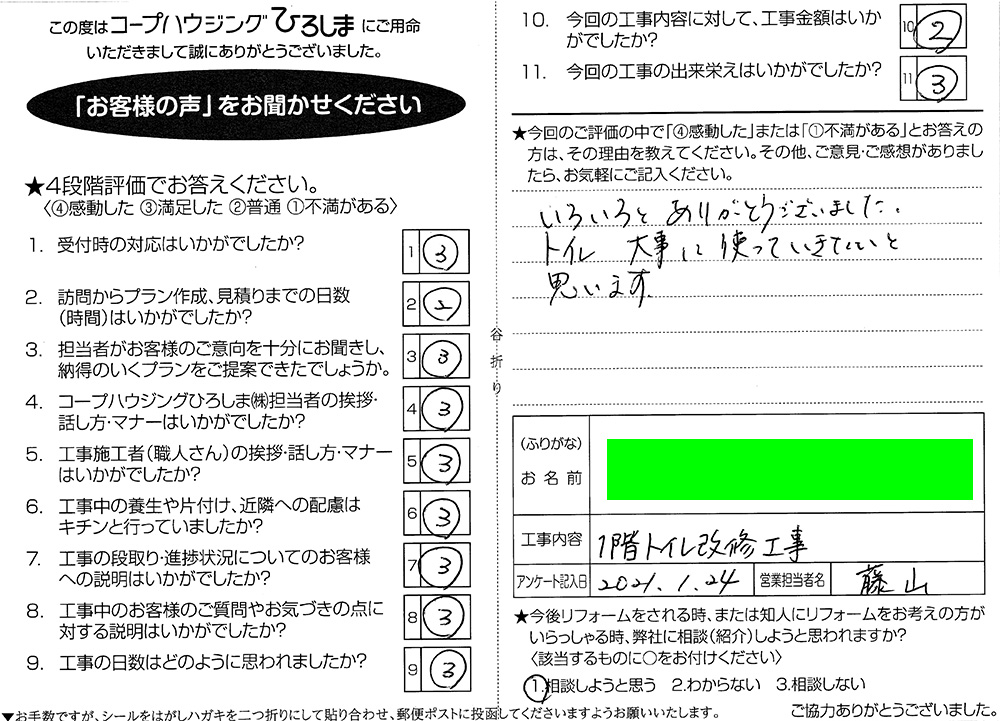 この度はコープハウジングひろしまにご用命
いただきまして誠にありがとうございました。
「お客様の声」をお聞かせください
★4段階評価でお答えください。
〈④感動した ③満足した ②普通 ①不満がある〉
1. 受付時の対応はいかがでしたか?
1 ③
2. 訪問からプラン作成、見積りまでの日数
(時間)はいかがでしたか?
2 ②
3. 担当者がお客様のご意向を十分にお聞きし、
納得のいくプランをご提案できたでしょうか。
3 ③
4. コープハウジングひろしま㈱担当者の挨拶・
話し方・マナーはいかがでしたか?
4 ③
5. 工事施工者(職人さん)の挨拶・話し方・マナー
はいかがでしたか?
5 ③
6. 工事中の養生や片付け、近隣への配慮は
キチンと行っていましたか?
6 ③
7. 工事の段取り・進捗状況についてのお客様
への説明はいかがでしたか?
7 ③
8. 工事中のお客様のご質問やお気づきの点に
対する説明はいかがでしたか?
8 ③
9. 工事の日数はどのように思われましたか?
9 ③
▼お手数ですが、シールをはがしハガキを二つ折りにして貼り合わせ、郵便ポストに投函してくださいますようお願いいたします。
谷折り
10. 今回の工事内容に対して、工事金額はいか
がでしたか?
10 ②
11. 今回の工事の出来栄えはいかがでしたか?
11 ③
★今回のご評価の中で「④感動した」または「①不満がある」とお答えの
方は、その理由を教えてください。その他、ご意見・ご感想がありまし
たら、お気軽にご記入ください。
いろいろと ありがとうございました。
トイレ 大事に使っていきたいと
思います。
(ふりがな)
お名前
工事内容 1階トイレ改修工事
アンケート記入日 2021.1.24 営業担当者名 藤山
★今後リフォームをされる時、または知人にリフォームをお考えの方が
いらっしゃる時、弊社に相談(紹介)しようと思われますか?
〈該当するものに○をお付けください〉
1.相談しようと思う 2.わからない 3.相談しない
ご協力ありがとうございました。